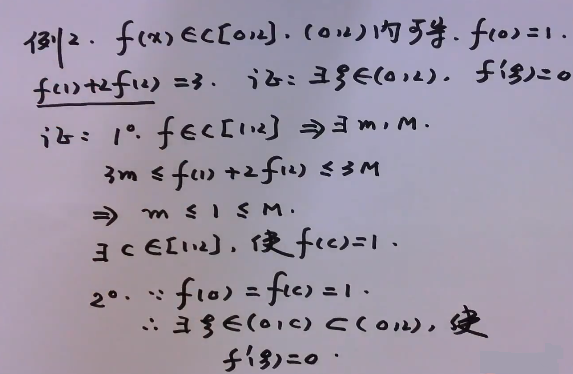 例2. f(x)∈C[0,2]. (0,2)内可导. f(0)=1.
f(1)+2f(2)=3. 证: ∃ξ∈(0,2). f'(ξ)=0
证: 1°. f∈C[1,2] ⇒ ∃ m, M.
3m ≤ f(1)+2f(2) ≤ 3M
⇒ m ≤ 1 ≤ M.
∃ c∈[1,2], 使 f(c)=1.
2°. ∵ f(0)=f(c)=1.
∴ ∃ ξ∈(0,c)⊂(0,2), 使
f'(ξ)=0.